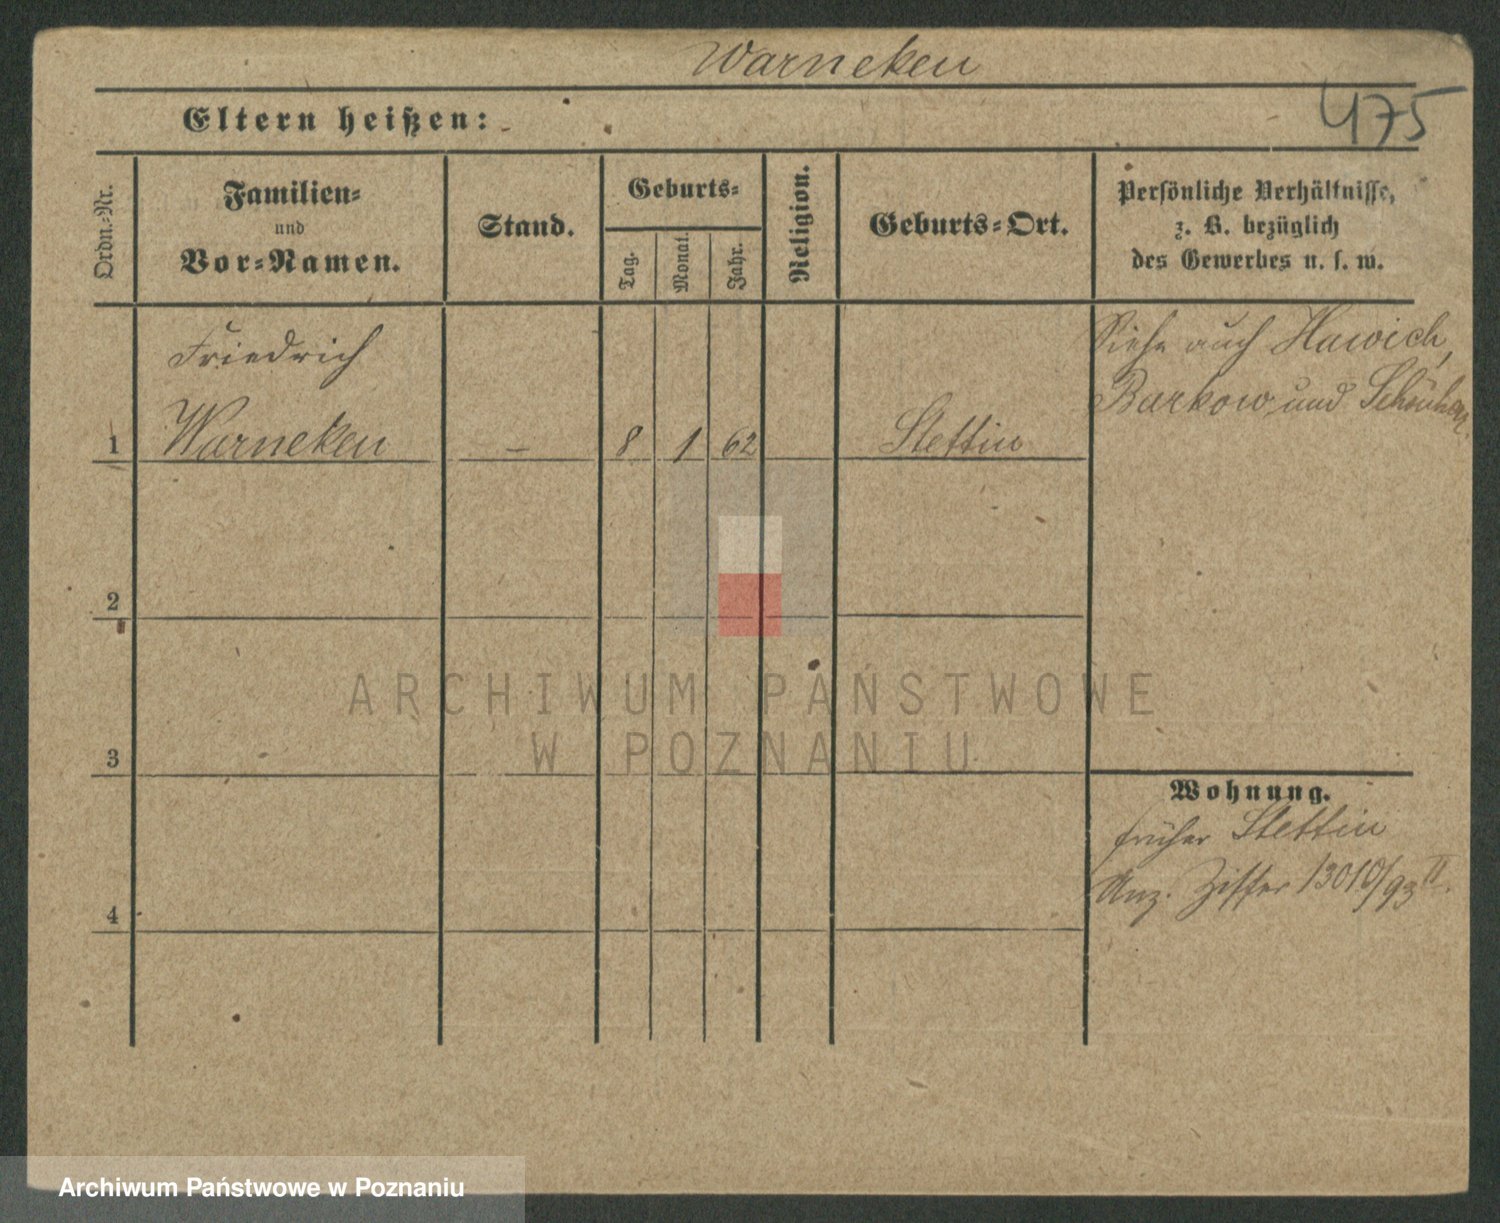 Warneken
475
Eltern heißen:
Ordn.-Nr.
Familien-
und
Vor-Namen.
Stand.
Geburts-
Tag.
Monat.
Jahr.
Religion.
Geburts-Ort.
Persönliche Verhältnisse,
z. B. bezüglich
des Gewerbes u. s. w.
Friedrich
1 Warneken – 8 1 62 Stettin
Siehe auch Hawich,
Barkow und
2
3
4
Wohnung.
früher Stettin
Anz. Ziffer 13010/93 II.
ARCHIWUM PAŃSTWOWE
W POZNANIU
Archiwum Państwowe w Poznaniu